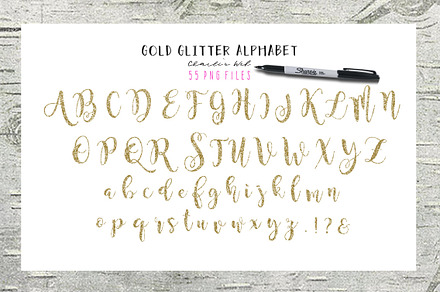 GOLD GLITTER ALPHABET
55 PNG FILES
Sharpie
A B C D E F G H I J K L M N
O P Q R S T U V W X Y Z
a b c d e f g h i j k l m n
o p q r s t u v w x y z . ! ? &